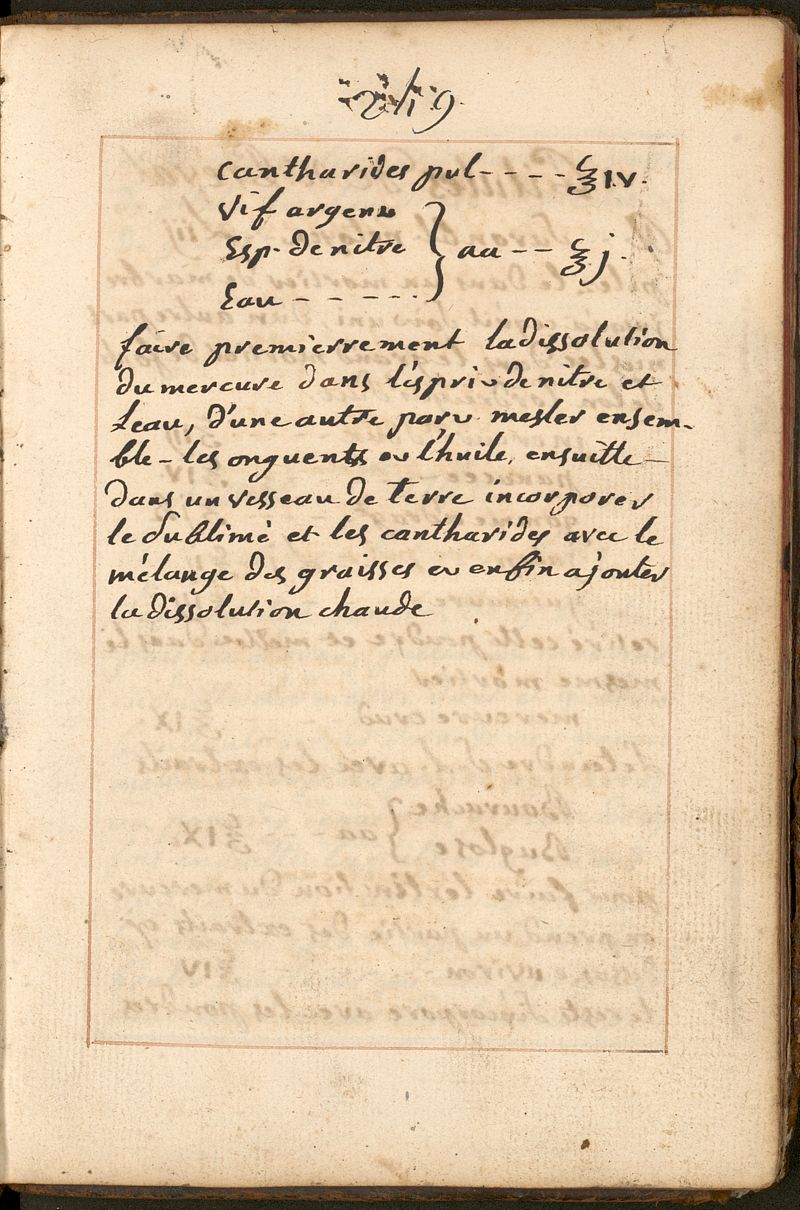 219.
Cantharides pul - - - - ℥ IV.
Vif argent
Esp. de nitre } aa - - ℥ j.
Eau - - - - -
faire premierrement la dissolution
du mercure dans l'esprit de nitre et
Leau, d'une autre part mesler ensem-
ble - les onguents et l'huile, ensuitte -
dans un vesseau de terre incorporer
le Sublimé et les cantharides avec le
mélange des graisses et enfin ajouter
la dissolution chaude